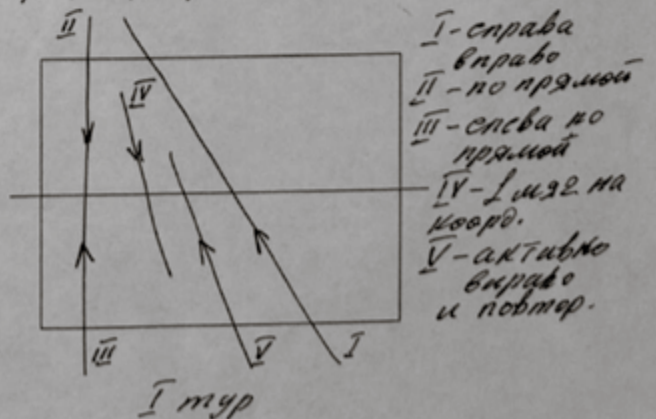 II
IV
III
V
I
I - справа
вправо
II - по прямой
III - слева по
прямой
IV - 1 мяч на
коорд.
V - активно
вправо
и повтор.
I тур